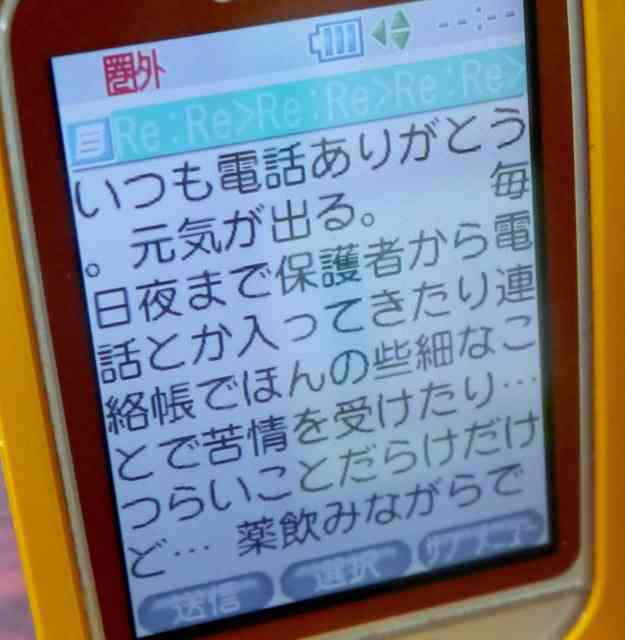 圏外
--:--
Re:Re>Re:Re>Re:Re>
いつも電話ありがとう
。元気が出る。 毎
日夜まで保護者から電
話とか入ってきたり連
絡帳でほんの些細なこ
とで苦情を受けたり…
つらいことだらけだけ
ど… 薬飲みながらで
送信 選択 サブメニュー